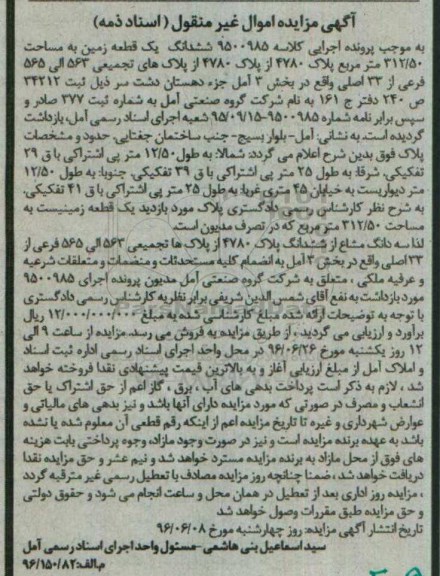 آگهی مزایده اموال غیر منقول (اسناد ذمه)
به موجب پرونده اجرایی کلاسه ۹۵۰۰۹۸۵ ششدانگ یک قطعه زمین به مساحت
۳۱۲/۵۰ متر مربع پلاک ۴۷۸۰ از پلاک ۴۷۸۰ از پلاک های تجمیعی ۵۶۳ الی ۵۶۵
فرعی از ۳۳ اصلی واقع در بخش ۳ آمل جزء دهستان دشت سر ذیل ثبت ۳۴۲۱۲
ص ۲۴۰ دفتر ج ۱۶۱ به نام شرکت گروه صنعتی آمل به شماره ثبت ۳۷۷ صادر و
سپس برابر نامه شماره ۹۵۰۰۹۸۵-۹۵/۰۹/۱۵ شعبه اجرای اسناد رسمی آمل، بازداشت
گردیده است. به نشانی: آمل- بلوار بسیج- جنب ساختمان جغتایی. حدود و مشخصات
پلاک فوق بدین شرح اعلام می گردد: شمالا: به طول ۱۲/۵۰ متر پی اشتراکی با ق ۲۹
تفکیکی. شرقا: به طول ۲۵ متر پی اشتراکی با ق ۳۹ تفکیکی. جنوبا: به طول ۱۲/۵۰
متر دیواریست به خیابان ۴۵ متری غربا: به طول ۲۵ متر پی اشتراکی با ق ۴۱ تفکیکی.
به شرح نظر کارشناس رسمی دادگستری پلاک مورد بازدید یک قطعه زمینیست به
مساحت ۳۱۲/۵۰ متر مربع که در تصرف مدیون است.
لذا سه دانگ مشاع از ششدانگ پلاک ۴۷۸۰ از پلاک ها تجمیعی ۵۶۳ الی ۵۶۵ فرعی از
۳۳ اصلی واقع در بخش ۳ آمل به انضمام کلیه مستحدثات و منضمات و متعلقات شرعیه
و عرفیه ملکی ، متعلق به شرکت گروه صنعتی آمل مدیون پرونده اجرای ۹۵۰۰۹۸۵
مورد بازداشت به نفع آقای شمس الدین شریفی برابر نظریه کارشناس رسمی دادگستری
با توجه به توضیحات ارائه شده مبلغ کارشناسی شده به مبلغ ۱۲/۰۰۰/۰۰۰/۰۰۰ ریال
برآورد و ارزیابی می گردید ، از طریق مزایده به فروش می رسد. مزایده از ساعت ۹ الی
۱۲ روز یکشنبه مورخ ۹۶/۰۶/۲۶ در محل واحد اجرای اسناد رسمی اداره ثبت اسناد
و املاک آمل از مبلغ ارزیابی آغاز و به بالاترین قیمت پیشنهادی نقدا فروخته خواهد
شد ، لازم به ذکر است پرداخت بدهی های آب ، برق ، گاز اعم از حق اشتراک یا حق
انشعاب و مصرف در صورتی که مورد مزایده دارای آنها باشد و نیز بدهی های مالیاتی و
عوارض شهرداری و غیره تا تاریخ مزایده اعم از اینکه رقم قطعی آن معلوم شده یا نشده
باشد به عهده برنده مزایده است و نیز در صورت وجود مازاد، وجوه پرداختی بابت هزینه
های فوق از محل مازاد به برنده مزایده مسترد خواهد شد و نیم عشر و حق مزایده نقدا
دریافت خواهد شد ، ضمنا چنانچه روز مزایده مصادف با تعطیل رسمی غیر مترقبه گردد
، مزایده روز اداری بعد از تعطیل در همان محل و ساعت انجام می شود و حقوق دولتی
و حق مزایده طبق مقررات وصول خواهد شد
تاریخ انتشار آگهی مزایده: روز چهارشنبه مورخ ۹۶/۰۶/۰۸
سید اسماعیل بنی هاشمی-مسئول واحد اجرای اسناد رسمی آمل
م.الف: ۹۶/۱۵۰/۸۲